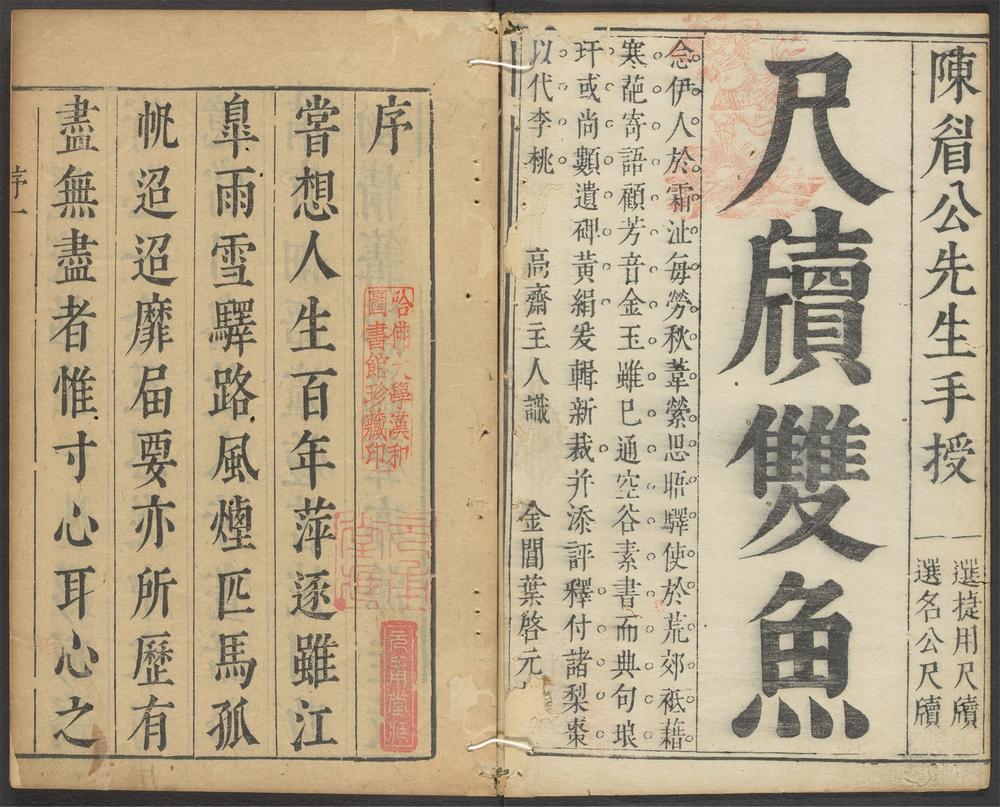 陳眉公先生手授
一選捷用尺牘
一選名公尺牘
尺牘雙魚
念伊人於霜沚每勞秋葦縈思晤驛使於荒郊祗藉
寒葩寄語顧芳音金玉雖已通空谷素書而典句琅
玕或尚顋遺碑黃絹爰輯新裁并添評釋付諸梨棗
以代李桃
高齋主人識
金閶葉啓元
序
嘗想人生百年萍逐雖江
臯雨雪驛路風煙匹馬孤
帆迢迢靡屆要亦所歷有
盡無盡者惟寸心耳心之
序一
哈佛大學漢和
圖書館珍藏印